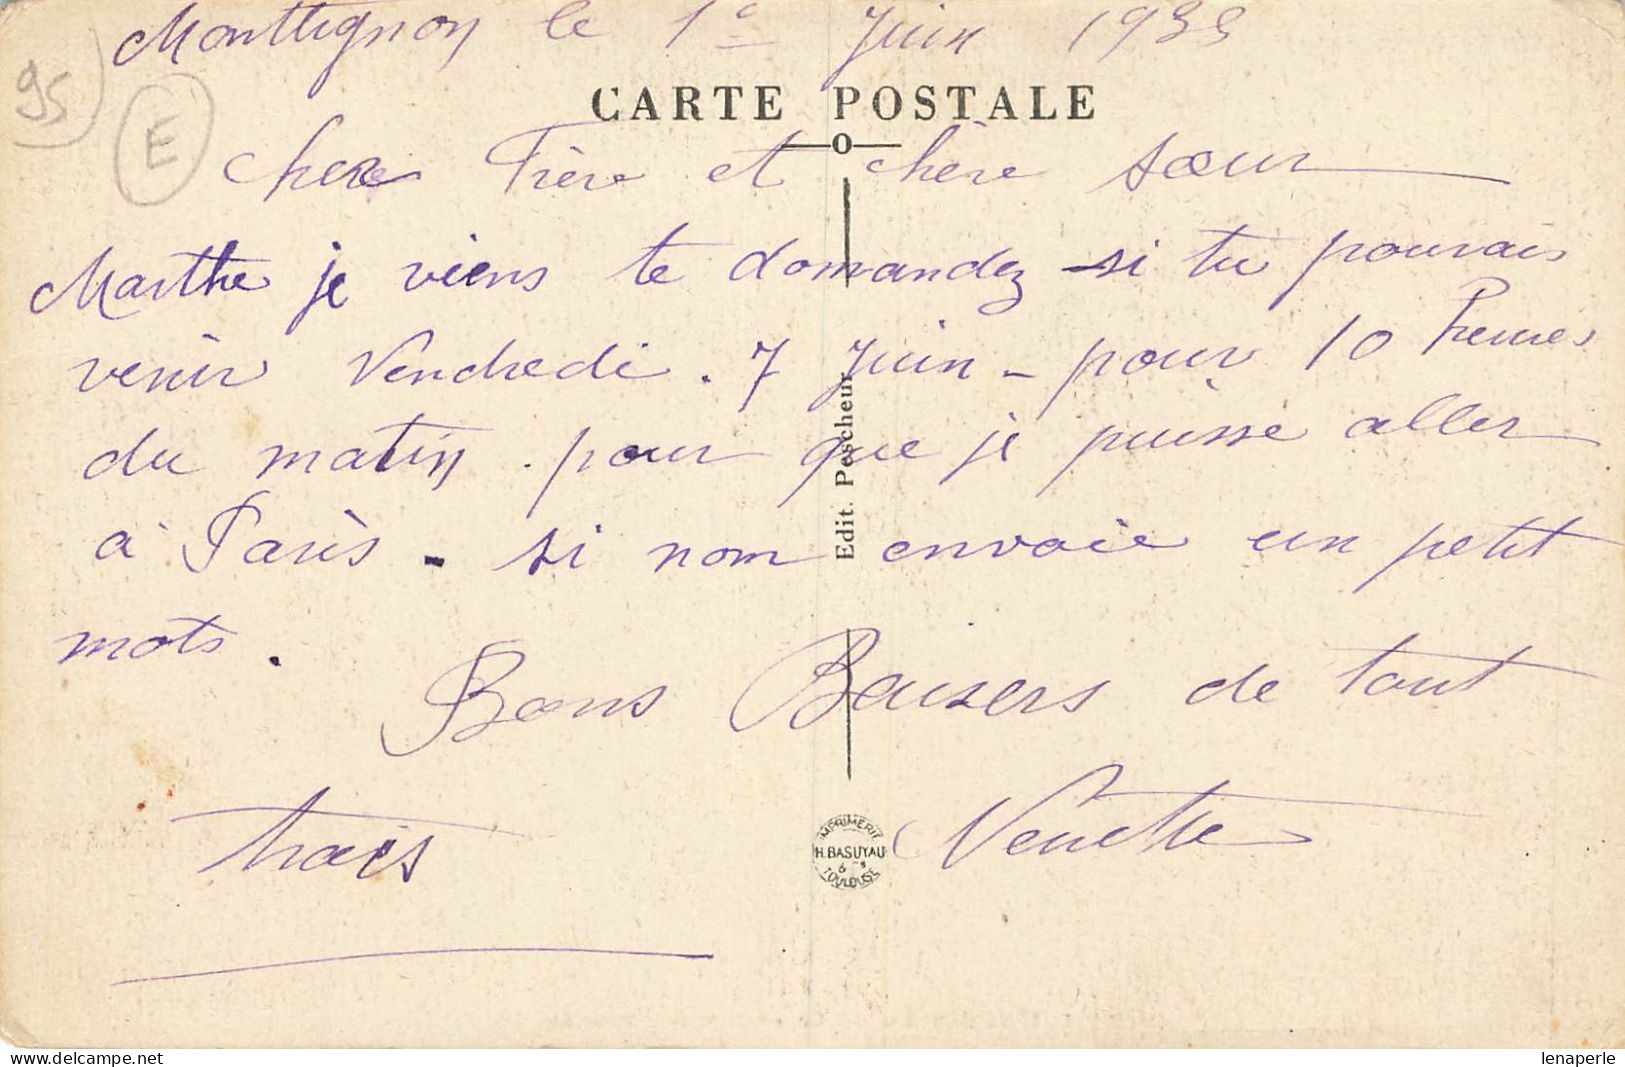 Monttignon le 1e Juin 1935
95
E
CARTE POSTALE
chere Frère et chère sœur
Marthe je viens te domandez si tu pourais
venir Vendredi . 7 Juin - pour 10 heures
du matin . pour que je puisse aller
à Paris - si nom envoie un petit
mots .
Bons Baisers de tout
trois
Edit. Pescheur
IMPRIMERIE
H. BASUYAU
TOULOUSE
lenaperle